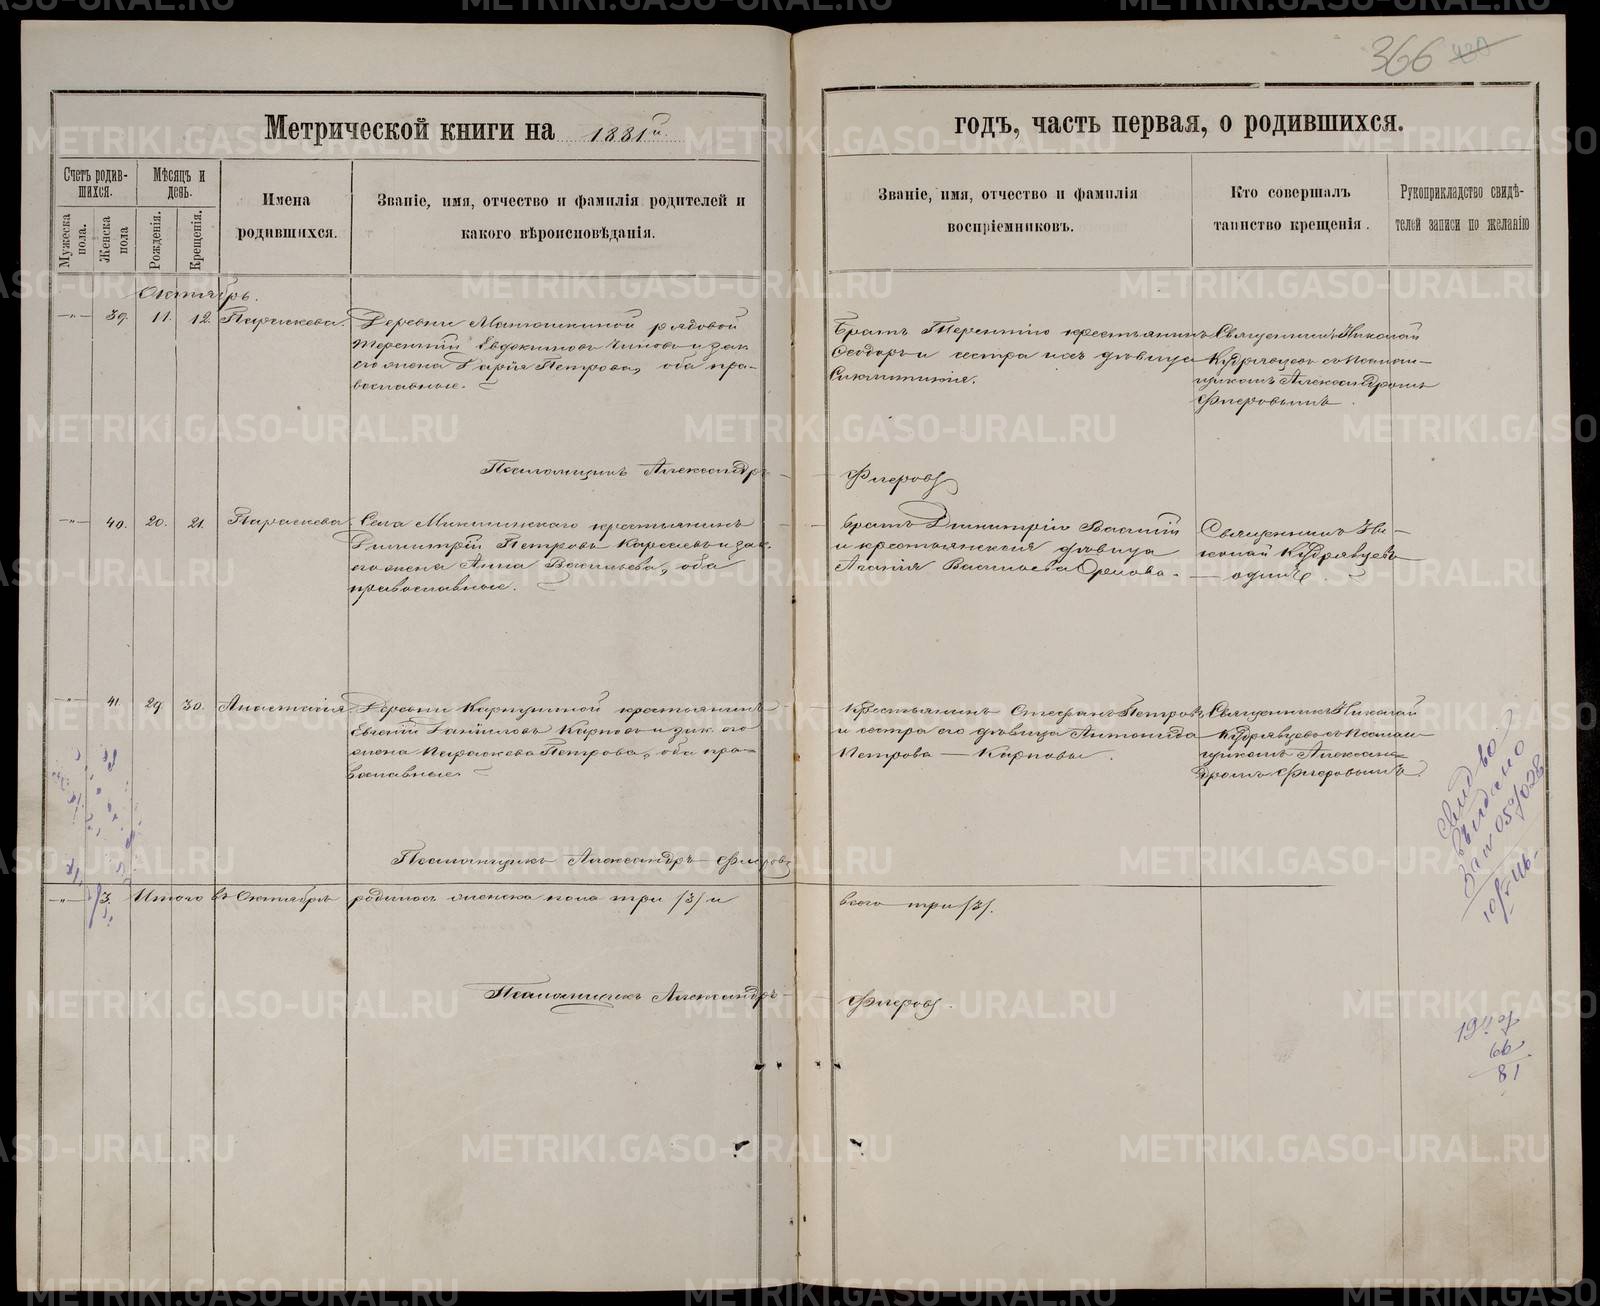 366
Метрической книги на 1881й.
годъ, часть первая, о родившихся.
Счетъ родив-
шихся.
Мужеска
пола.
Женска
пола
Мѣсяцъ и
день.
Рожденія.
Крещенія.
Имена
родившихся.
Званіе, имя, отчество и фамилія родителей и
какого вѣроисповѣданія.
Званіе, имя, отчество и фамилія
воспріемниковъ.
Кто совершалъ
таинство крещенія.
Рукоприкладство свидѣ-
телей записи по желанію
Октябрь.
39. 11. 12. Параскева.
Деревни Матюшкиной рядовой
Терентій Евдокимовъ и зак.
его жена Дарія Петрова, оба пра-
вославные.
Братъ Терентію крестьянинъ
Ѳеодоръ и сестра ихъ дѣвица
Синклитикія.
Священникъ Николай
Кудрявцевъ съ Псалом-
щикомъ Александромъ
Флеровымъ.
Псаломщикъ Александръ Флеровъ
40. 20. 21. Параскева.
Села крестьянинъ
Димитрій Петровъ и зак.
его жена Анна Васильева, оба
православные.
Братъ Димитрія Василій
и крестьянская дѣвица
Агапія Васильева Орлова.
Священникъ Ни-
колай Кудрявцевъ
— одинъ.
41. 29. 30. Анастасія
Деревни крестьянинъ
Евгеній Данииловъ Карповъ и зак. его
жена Параскева Петрова, оба пра-
вославные.
Крестьянинъ Стефанъ Петровъ
и сестра его дѣвица Антонида
Петрова — Карповы.
Священникъ Николай
Кудрявцевъ съ Псалом-
щикомъ Алексан-
дромъ Флеровымъ
Псаломщикъ Александръ Флеровъ
3. Итого въ Октябрѣ родилось женска пола три /3/ и
всего три /3/.
Псаломщикъ Александръ Флеровъ.
Свид-во
выдано
METRIKI.GASO-URAL.RU